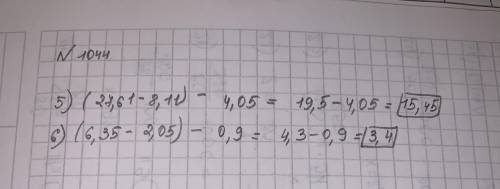 N 1044
5) (27,61 - 8,11) - 4,05 = 19,5 - 4,05 = 15,45
6) (6,35 - 2,05) - 0,9 = 4,3 - 0,9 = 3,4